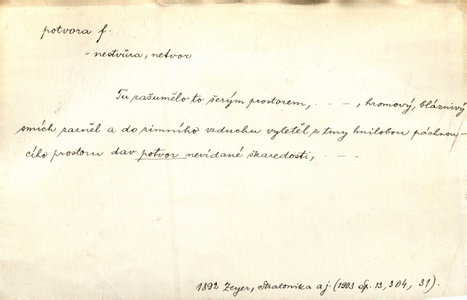 potvora f.
= nestvůra, netvor
Tu zašumělo to šerým prostorem, - - -, hromový, bláznivý
smích zazněl a do zimního vzduchu vyletěl z tmy hnilobou páchnou-
cího prostoru dav potvor nevídané škaredosti, - - -
1892 Zeyer, Stratonika aj. (1903 Sp. 13, 304, 31).